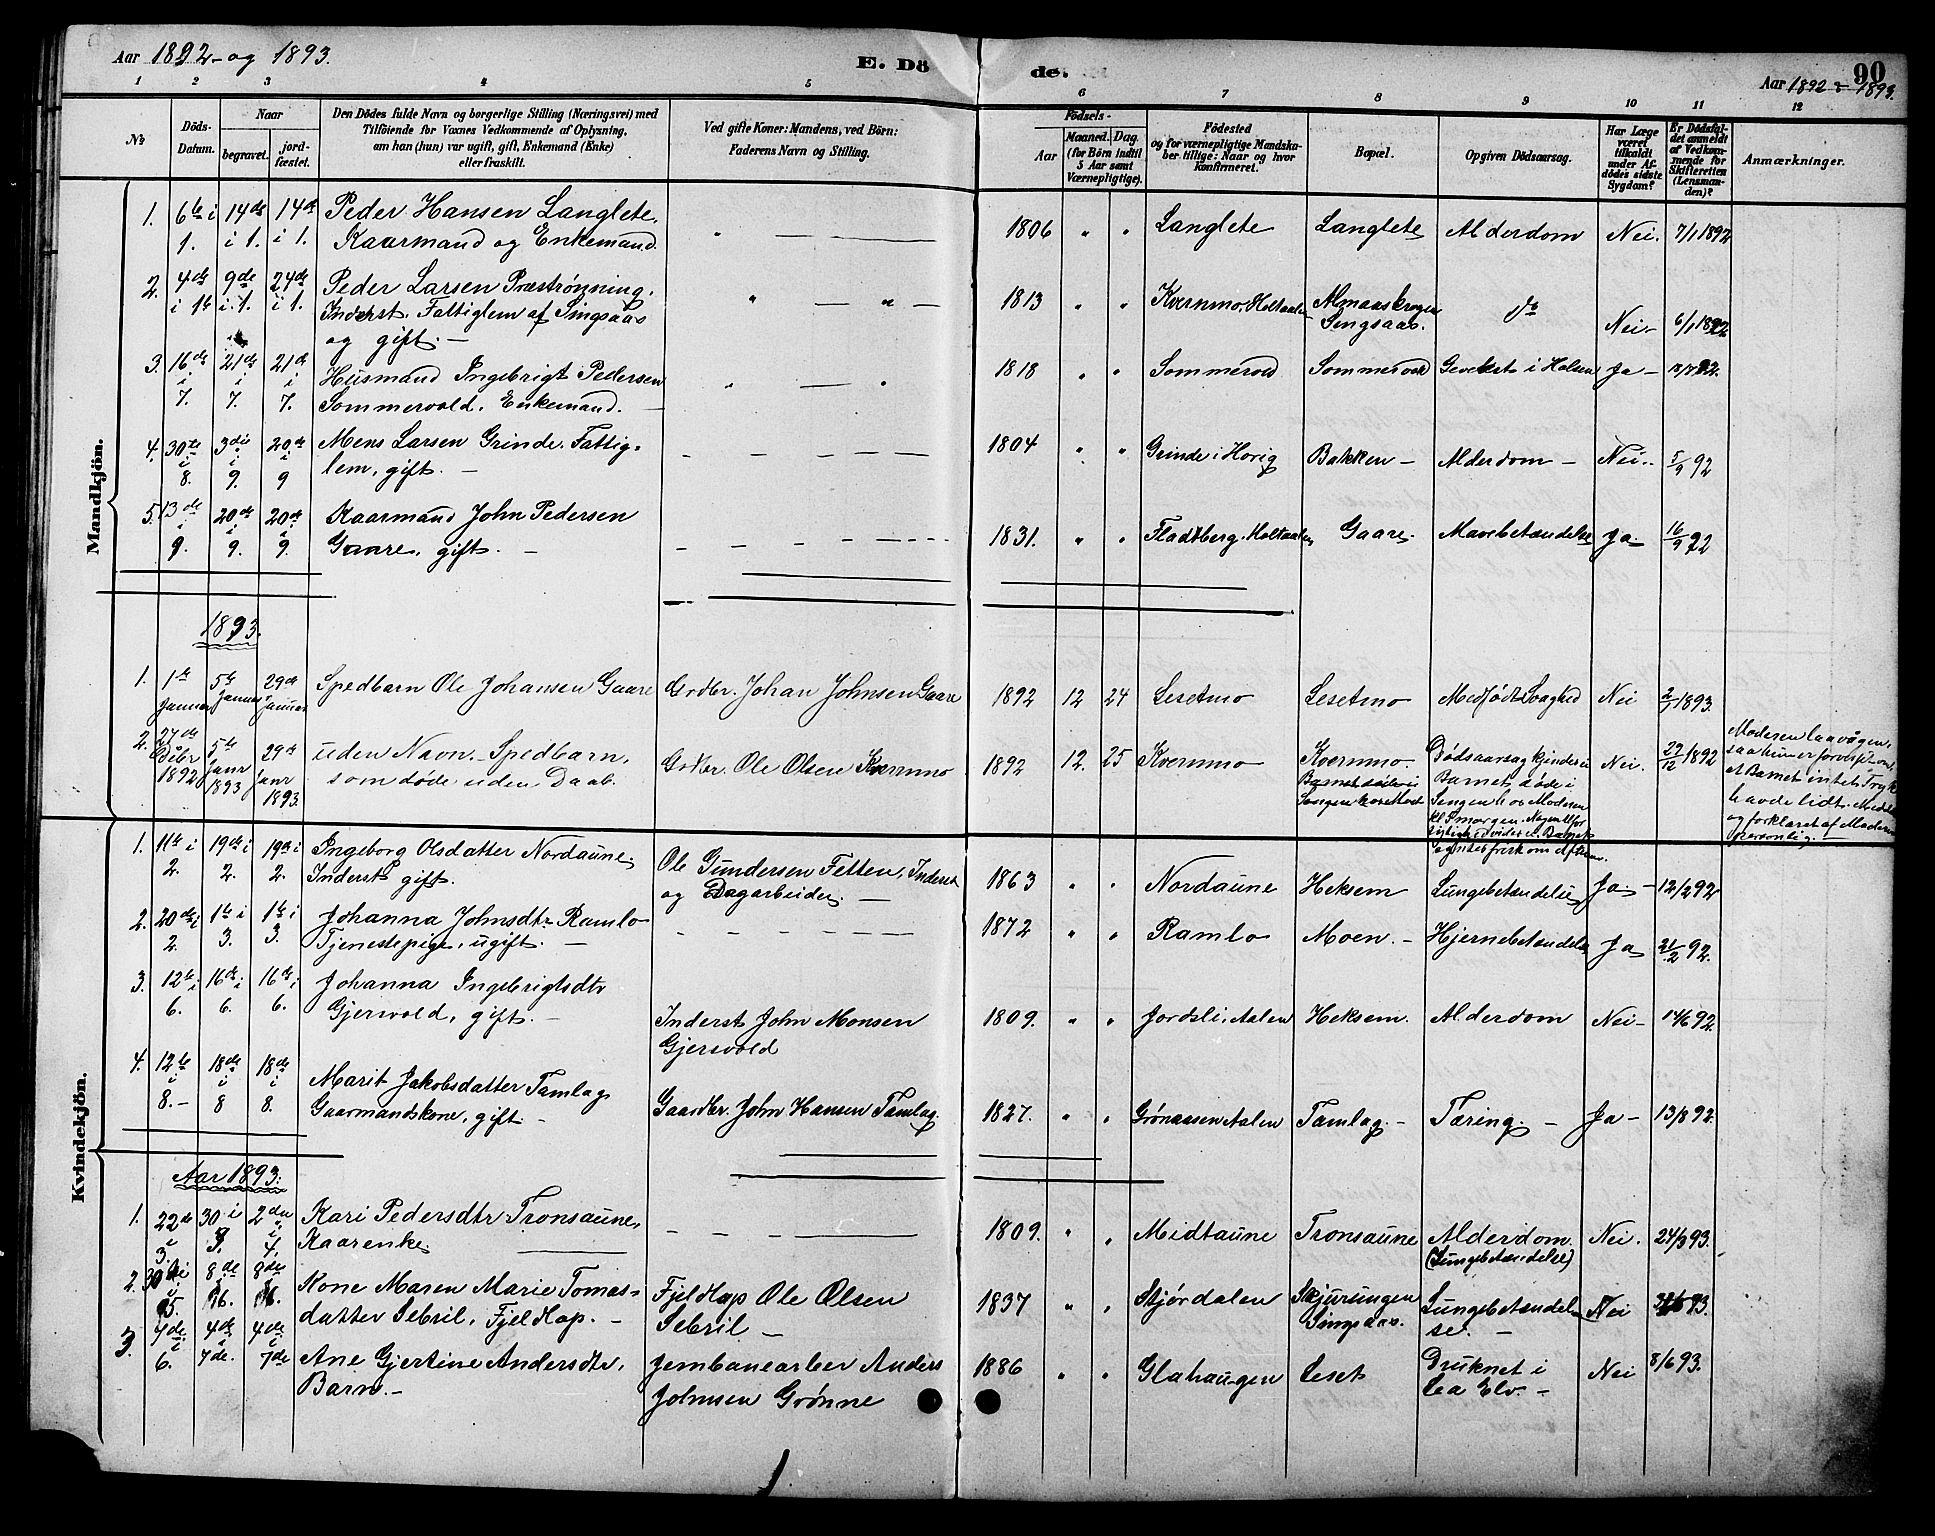 Aar 1892 og 1893.
E. Dö de.
90
Aar 1892 & 1893.
1 2 3 4 5 6 7 8 9 10 11 12
No
Döds-Datum.
Naar
begravet.
jord-fæstet.
Den Dödes fulde Navn og borgerlige Stilling (Næringsvei) med
Tilföiende for Voxnes Vedkommende af Oplysning,
om han (hun) var ugift, gift, Enkemand (Enke)
eller fraskilt.
Ved gifte Koner: Mandens, ved Börn:
Faderens Navn og Stilling.
Födsels-
Aar
Maaned. Dag.
(for Börn indtil
5 Aar samt
Værnepligtige).
Födested
og for værnepligtige Mandska-
ber tillige: Naar og hvor
konfirmeret.
Bopæl.
Opgiven Dödsaarsag.
Har Læge
været
tilkaldt
under Af-
dödes sidste
Sygdom?
Er Dödsfal-
det anmeldt
af Vedkom-
mende for
Skifteretten
(Lensman-
den)?
Anmærkninger.
Mandkjön.
1. 6te i 1. 14de i 1. 14de i 1. Peder Hansen Langlete, Kaarmand og Enkemand. 1806 " " Langlete Langlete Alderdom Nei. 7/1 1892
2. 4de i 1. 9de i 1. 24de i 1. Peder Larsen Præstrønning, Inderst, Fattiglem af Singsaas og gift. 1813 " " Kvernmo, Holtaalen Almaaskrogen Singsaas. do Nei 6/1 1892
3. 16de i 7. 21de i 7. 21de i 7. Husmand Ingebrigt Pedersen Sommervold, Enkemand. 1818 " " Sommervold Sommervold Gevekst i Halsen Ja 92.
4. 30te i 8. 3die i 9. 20de i 9 Mons Larsen Grinde, Fattiglem, gift. 1804 " " Grinde i Horig Bakken Alderdom Nei 5/9 92
5. 13de i 9. 20de i 9. 20de i 9. Kaarmand John Pedersen Gaare, gift. 1831. " " Fladtberg, Holtaalen Gaare. Mavebetændelse Ja 16/9 92
1893.
1. 1te Januar 5te Januar 29de Januar Spedbarn Ole Johansen Gaare Grdbr. Johan Johnsen Gaare 1892 12 24 Lesetmo Lesetmo Medfødt Svaghed Nei 2/1 1893.
2. 27de Debr 1892 5te Janr 1893 29de Janr 1893. uden Navn. Spedbarn, som døde uden Daab. Grdbr. Ole Olsen Kvernmo 1892 12. 25 Kvernmo Kvernmo. Barnet døde i Sengen hos Mod. Dødsaarsag Barnet døde i Sengen hos Moderen kl. 5 morgen. Barnet friskom Aftenen. Nei. 29/12 1892 Moderen laa vaagen, saa hun er forvisset om, at Barnet intet Tryk havde lidt. og forklaret af Moderen personlig.
Kvindekjön.
1. 11te i 2. 19de i 2. 19de i 2. Ingeborg Olsdatter Nordaune, Inderst gift. Ole Gundersen Fetten, Inderst og Dagarbeider. 1863 " " Nordaune Heksem Lungebetændelse Ja 12/2 92
2. 20de i 2. 1te i 3. 1te i 3. Johanna Johnsdtr Ramlo Tjenestepige, ugift. 1872 " " Ramlo Moen. Hjernebetændelse Ja 21/2 92.
3. 12te i 6. 16de i 6. 16de i 6. Johanna Ingebrigtsdtr Gjersvold, gift. Inderst John Monsen Gjersvold 1809. " " Jordsli, Aalen Heksem. Alderdom Nei 14/6 92
4. 12te i 8. 18de i 8 18de i 8. Marit Jakobsdatter Tamlag Gaarmandskone, gift. Gaardbr. John Hansen Tamlag. 1827. " " Grønaasen Aalen Tamlag. Tæring. Ja 13/8 92.
Aar 1893.
1. 22de i 3. 30 i 3. 2den i 4. Kari Pedersdtr Tronsaune, Kaarenke. 1809. " " Midtaune Tronsaune Alderdom. (Lungebetændelse) Nei. 24/3 93.
2. 30te i 5. 8de i 6. 8de i 6. Kone Maren Marie Tomasdatter Sebril, Fjeldlap. Fjeldlap Ole Olsen Sebril 1837 " " Stjørdalen Skjurungen Singsaas. Lungebetændelse. Nei 93.
3. 7de i 6. 4de i 7de. 4de i 7de Ane Gjertine Andersdtr, Barn. Jernbanearbeider Anders Johnsen Grønne 1886 " " Glahaugen Leset Druknet i Lea Elv. Nei 8/6 93.